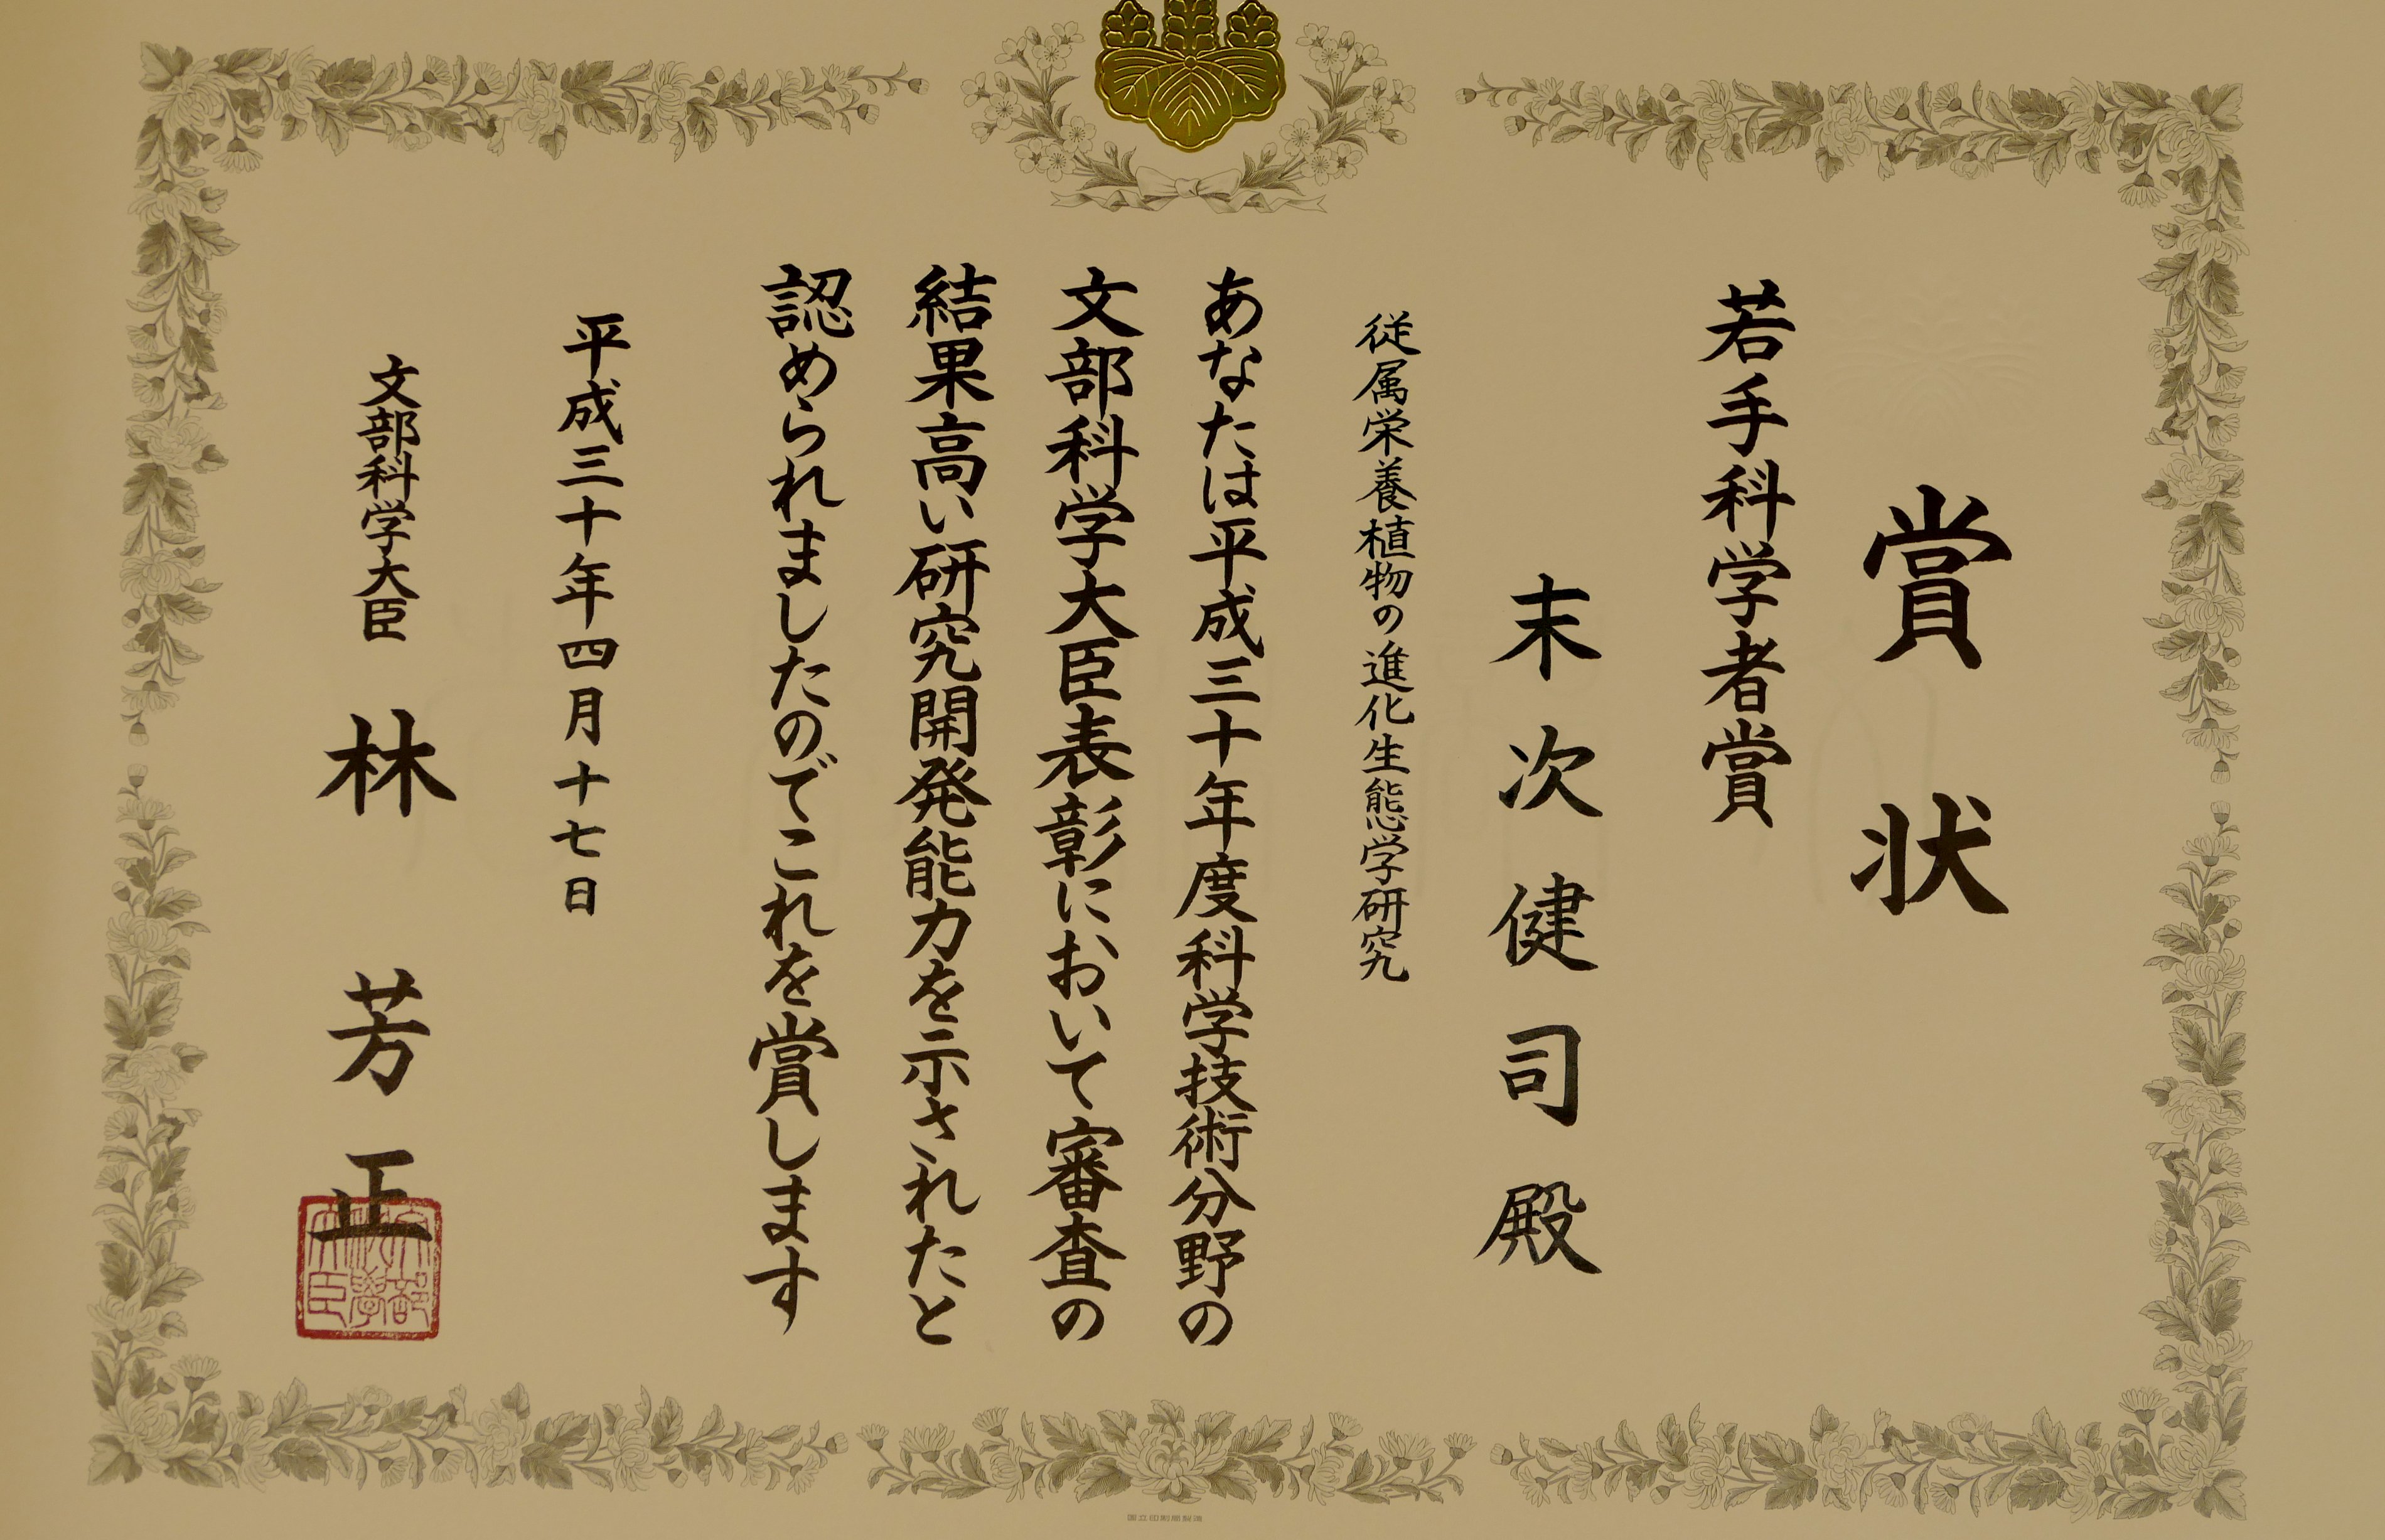 賞状
若手科学者賞
末次健司殿
従属栄養植物の進化生態学研究
あなたは平成三十年度科学技術分野の
文部科学大臣表彰において審査の
結果高い研究開発能力を示されたと
認められましたのでこれを賞します
平成三十年四月十七日
文部科学大臣 林芳正
文部科學大臣
国立印刷局製造